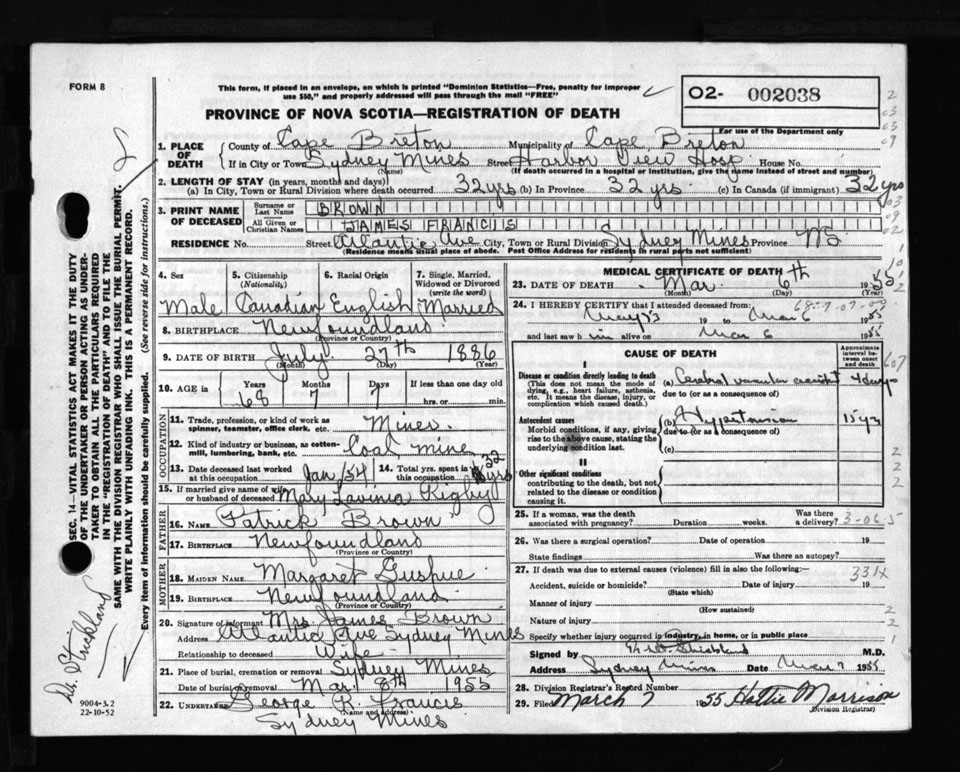 FORM 8
This form, if placed in an envelope, on which is printed "Dominion Statistics—Free, penalty for improper
use $50," and properly addressed will pass through the mail "FREE"
O2- 002038
PROVINCE OF NOVA SCOTIA—REGISTRATION OF DEATH
For use of the Department only
1. PLACE OF DEATH
County of Cape Breton Municipality of Cape Breton
If in City or Town Sydney Mines Street Harbor View Hosp. House No.
(Name) (If death occurred in a hospital or institution, give the name instead of street and number)
2. LENGTH OF STAY (in years, months and days)
(a) In City, Town or Rural Division where death occurred 32 yrs (b) In Province 32 yrs. (c) In Canada (if immigrant) 32 yrs
3. PRINT NAME OF DECEASED
Surname or Last Name BROWN
All Given or Christian Names JAMES FRANCIS
RESIDENCE No. Street Atlantic Ave City, Town or Rural Division Sydney Mines Province NS
(Residence means usual place of abode. Post Office Address for residents in rural parts not sufficient)
4. Sex 5. Citizenship (Nationality) 6. Racial Origin 7. Single, Married, Widowed or Divorced (write the word)
Male Canadian English Married
8. BIRTHPLACE Newfoundland
(Province or Country)
9. DATE OF BIRTH July 27th 1886
(Month) (Day) (Year)
10. AGE in Years Months Days If less than one day old
68 7 7 hrs. or min.
OCCUPATION
11. Trade, profession, or kind of work as spinner, teamster, office clerk, etc. Miner
12. Kind of industry or business, as cotton-mill, lumbering, bank, etc. Coal mine
13. Date deceased last worked at this occupation Jan/54 14. Total yrs. spent in this occupation 32 yrs
15. If married give name of wife or husband of deceased Mary Lavinia Rigby
FATHER
16. NAME Patrick Brown
17. BIRTHPLACE Newfoundland
(Province or Country)
MOTHER
18. MAIDEN NAME Margaret Gushue
19. BIRTHPLACE Newfoundland
(Province or Country)
20. Signature of informant Mrs. James Brown
Address Atlantic Ave Sydney Mines
Relationship to deceased Wife
21. Place of burial, cremation or removal Sydney Mines
Date of burial or removal Mar. 8th 1955
22. UNDERTAKER George R. Francis
(Name and address)
Sydney Mines
MEDICAL CERTIFICATE OF DEATH
23. DATE OF DEATH Mar. 6th 1955
(Month) (Day) (Year)
24. I HEREBY CERTIFY that I attended deceased from:
19 to Mar 6 1955
and last saw him alive on Mar 6 1955
CAUSE OF DEATH
Approximate interval between onset and death
I
Disease or condition directly leading to death
(This does not mean the mode of dying, e.g., heart failure, asthenia, etc. It means the disease, injury, or complication which caused death.)
(a) Cerebral vascular accident 4 days
due to (or as a consequence of)
Antecedent causes
Morbid conditions, if any, giving rise to the above cause, stating the underlying condition last.
(b) Hypertension 15 yrs
due to (or as a consequence of)
(c)
II
Other significant conditions
contributing to the death, but not related to the disease or condition causing it.
25. If a woman, was the death associated with pregnancy? Duration weeks. Was there a delivery?
3-06-5
26. Was there a surgical operation? Date of operation 19
State findings Was there an autopsy?
27. If death was due to external causes (violence) fill in also the following:—
331X
Accident, suicide or homicide? Date of injury 19
(State which)
Manner of injury
(How sustained)
Nature of injury
Specify whether injury occurred in industry, in home, or in public place
Signed by Strickland M.D.
Address Sydney Mines Date Mar 7 1955
28. Division Registrar's Record Number
29. Filed March 7 1955 Hattie Morrison
(Division Registrar)
SEC. 14—VITAL STATISTICS ACT MAKES IT THE DUTY
OF THE UNDERTAKER OR PERSON ACTING AS UNDER-
TAKER TO OBTAIN ALL THE PARTICULARS REQUIRED
IN THE "REGISTRATION OF DEATH" AND TO FILE THE
SAME WITH THE DIVISION REGISTRAR WHO SHALL ISSUE THE BURIAL PERMIT.
WRITE PLAINLY WITH UNFADING INK. THIS IS A PERMANENT RECORD.
Every item of information should be carefully supplied. (See reverse side for instructions.)
Dr. Strickland
9004-3.2
22-10-52